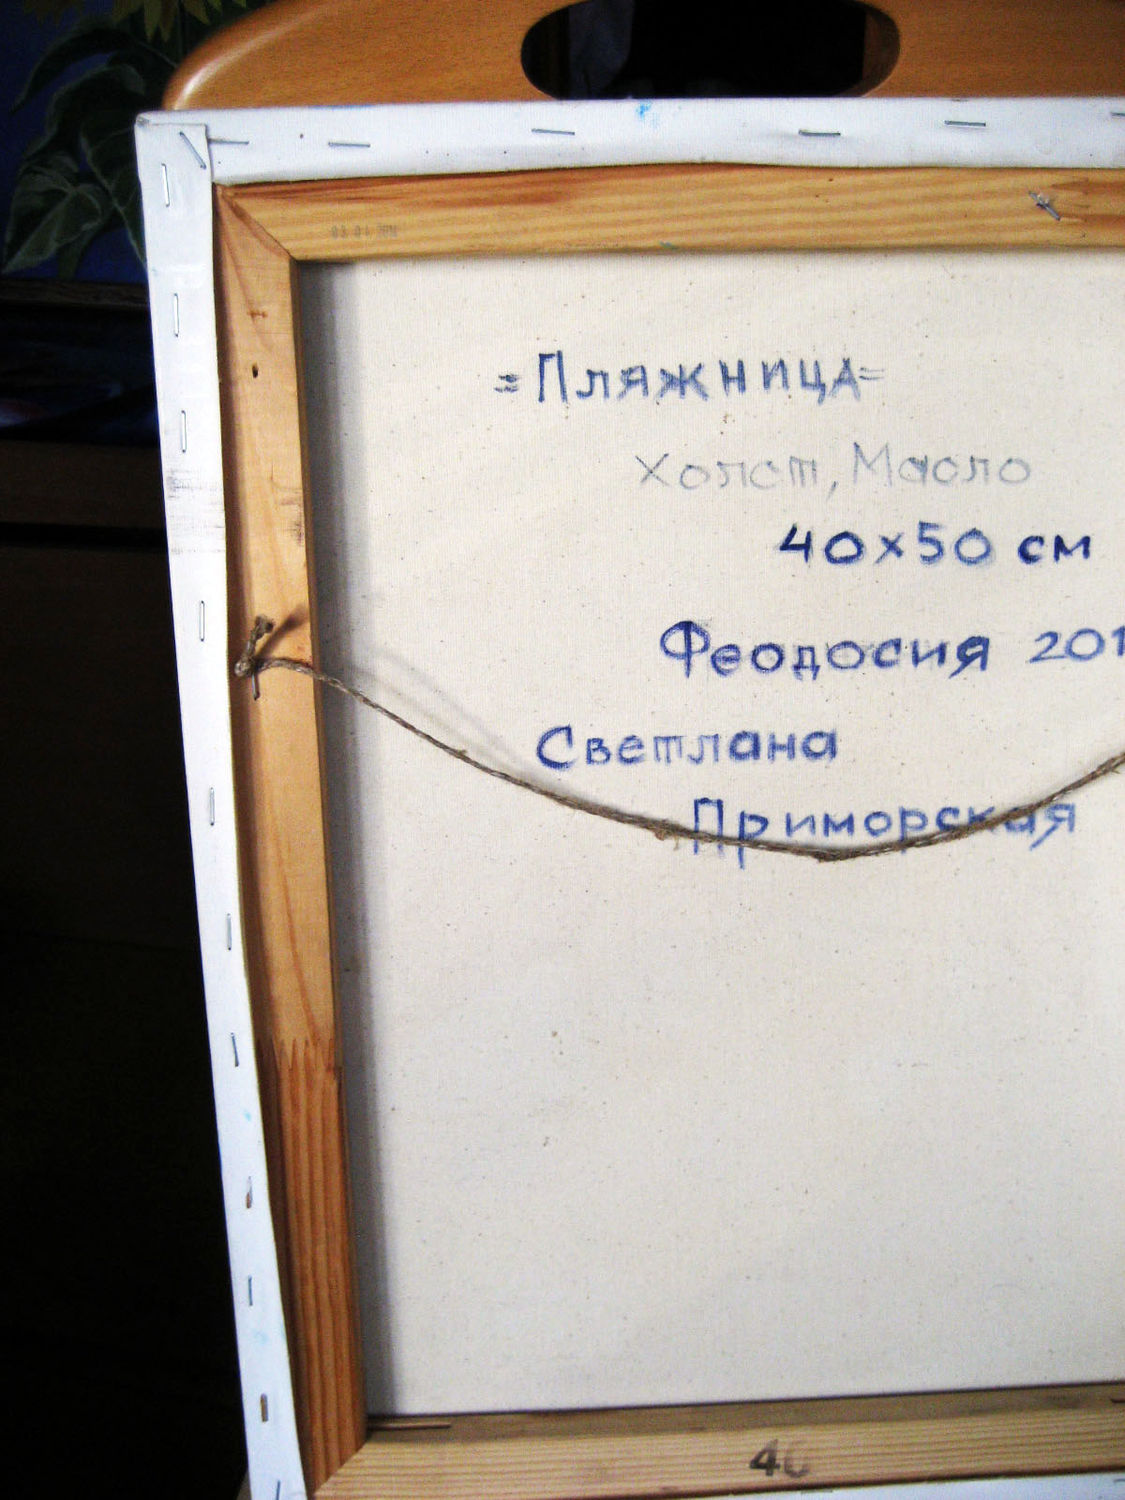 =Пляжница=
Холст, Масло
40х50 см
Феодосия 201
Светлана
Приморская
40